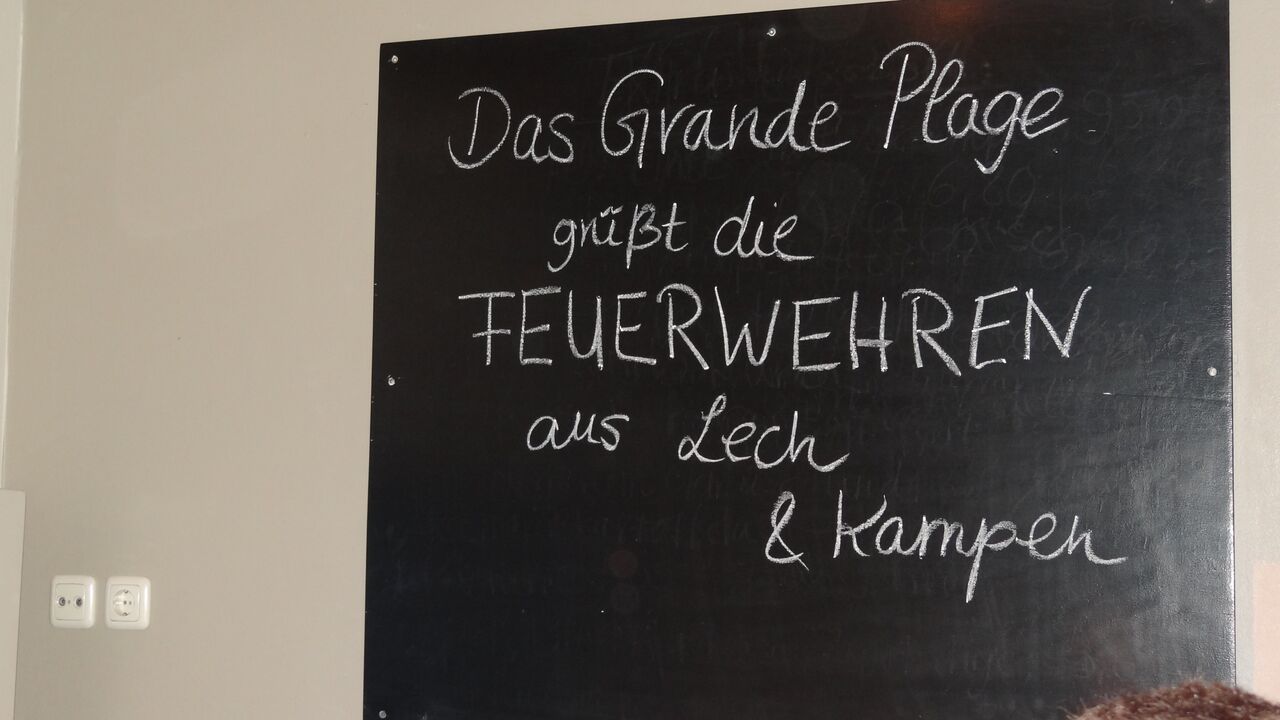 Das Grande Plage
grüßt die
FEUERWEHREN
aus Lech
& Kampen